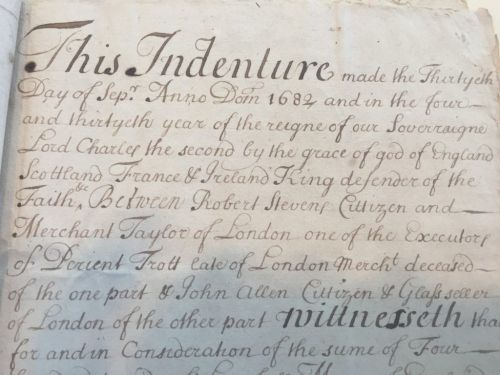 This Indenture made the Thirtyeth
Day of Sepr. Anno Dom 1682 and in the four—
and thirtyeth year of the reigne of our Soverraigne
Lord Charles the second by the grace of god of England
Scottland France & Ireland King defender of the
Faith &c. Between Robert Stevens Cittizen and—
Merchant Taylor of London one of the Executors
of Perient Trott late of London Mercht. deceased—
of the one part & John Allen Cittizen & Glass seller
of London of the other part Wittnesseth that
for and in Consideration of the sume of Four—